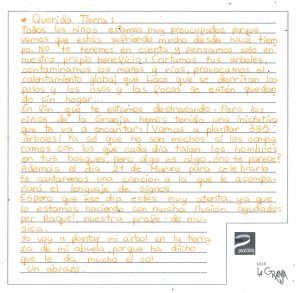 ♥ Querida Tierra:
Todos los niños estamos muy preocupados porque
vemos que estás sufriendo mucho desde hace tiem
po. No te tenemos en cuenta y pensamos solo en
nuestro propio beneficio: Cortamos tus árboles,
contaminamos los mares y ríos, provocamos el
calentamiento global que hace que se derritan los
polos y los osos y las focas se estén quedan
do sin hogar...
En fin, que te estamos destrozando. Pero los
niños de la Granja hemos tenido una iniciativa
que te va a encantar: ¡Vamos a plantar 385
árboles! Ya sé que no son muchos si los compa
ramos con los que cada día talan los hombres
en tus bosques, pero algo es algo, ¿no te parece?
Además el día 21 de Marzo para celebrarlo
te cantaremos una canción a la que le acompa
ñará el lenguaje de signos.
Espero que ese día estés muy atenta, ya que
lo estamos haciendo con mucha ilusión ayudados
por Raquel, nuestra profe de mú
sica.
Yo voy a plantar mi árbol en la tierra
ya de mi abuela, porque ha dicho
que le da mucho el sol.
Un abrazo.
La GRANJA